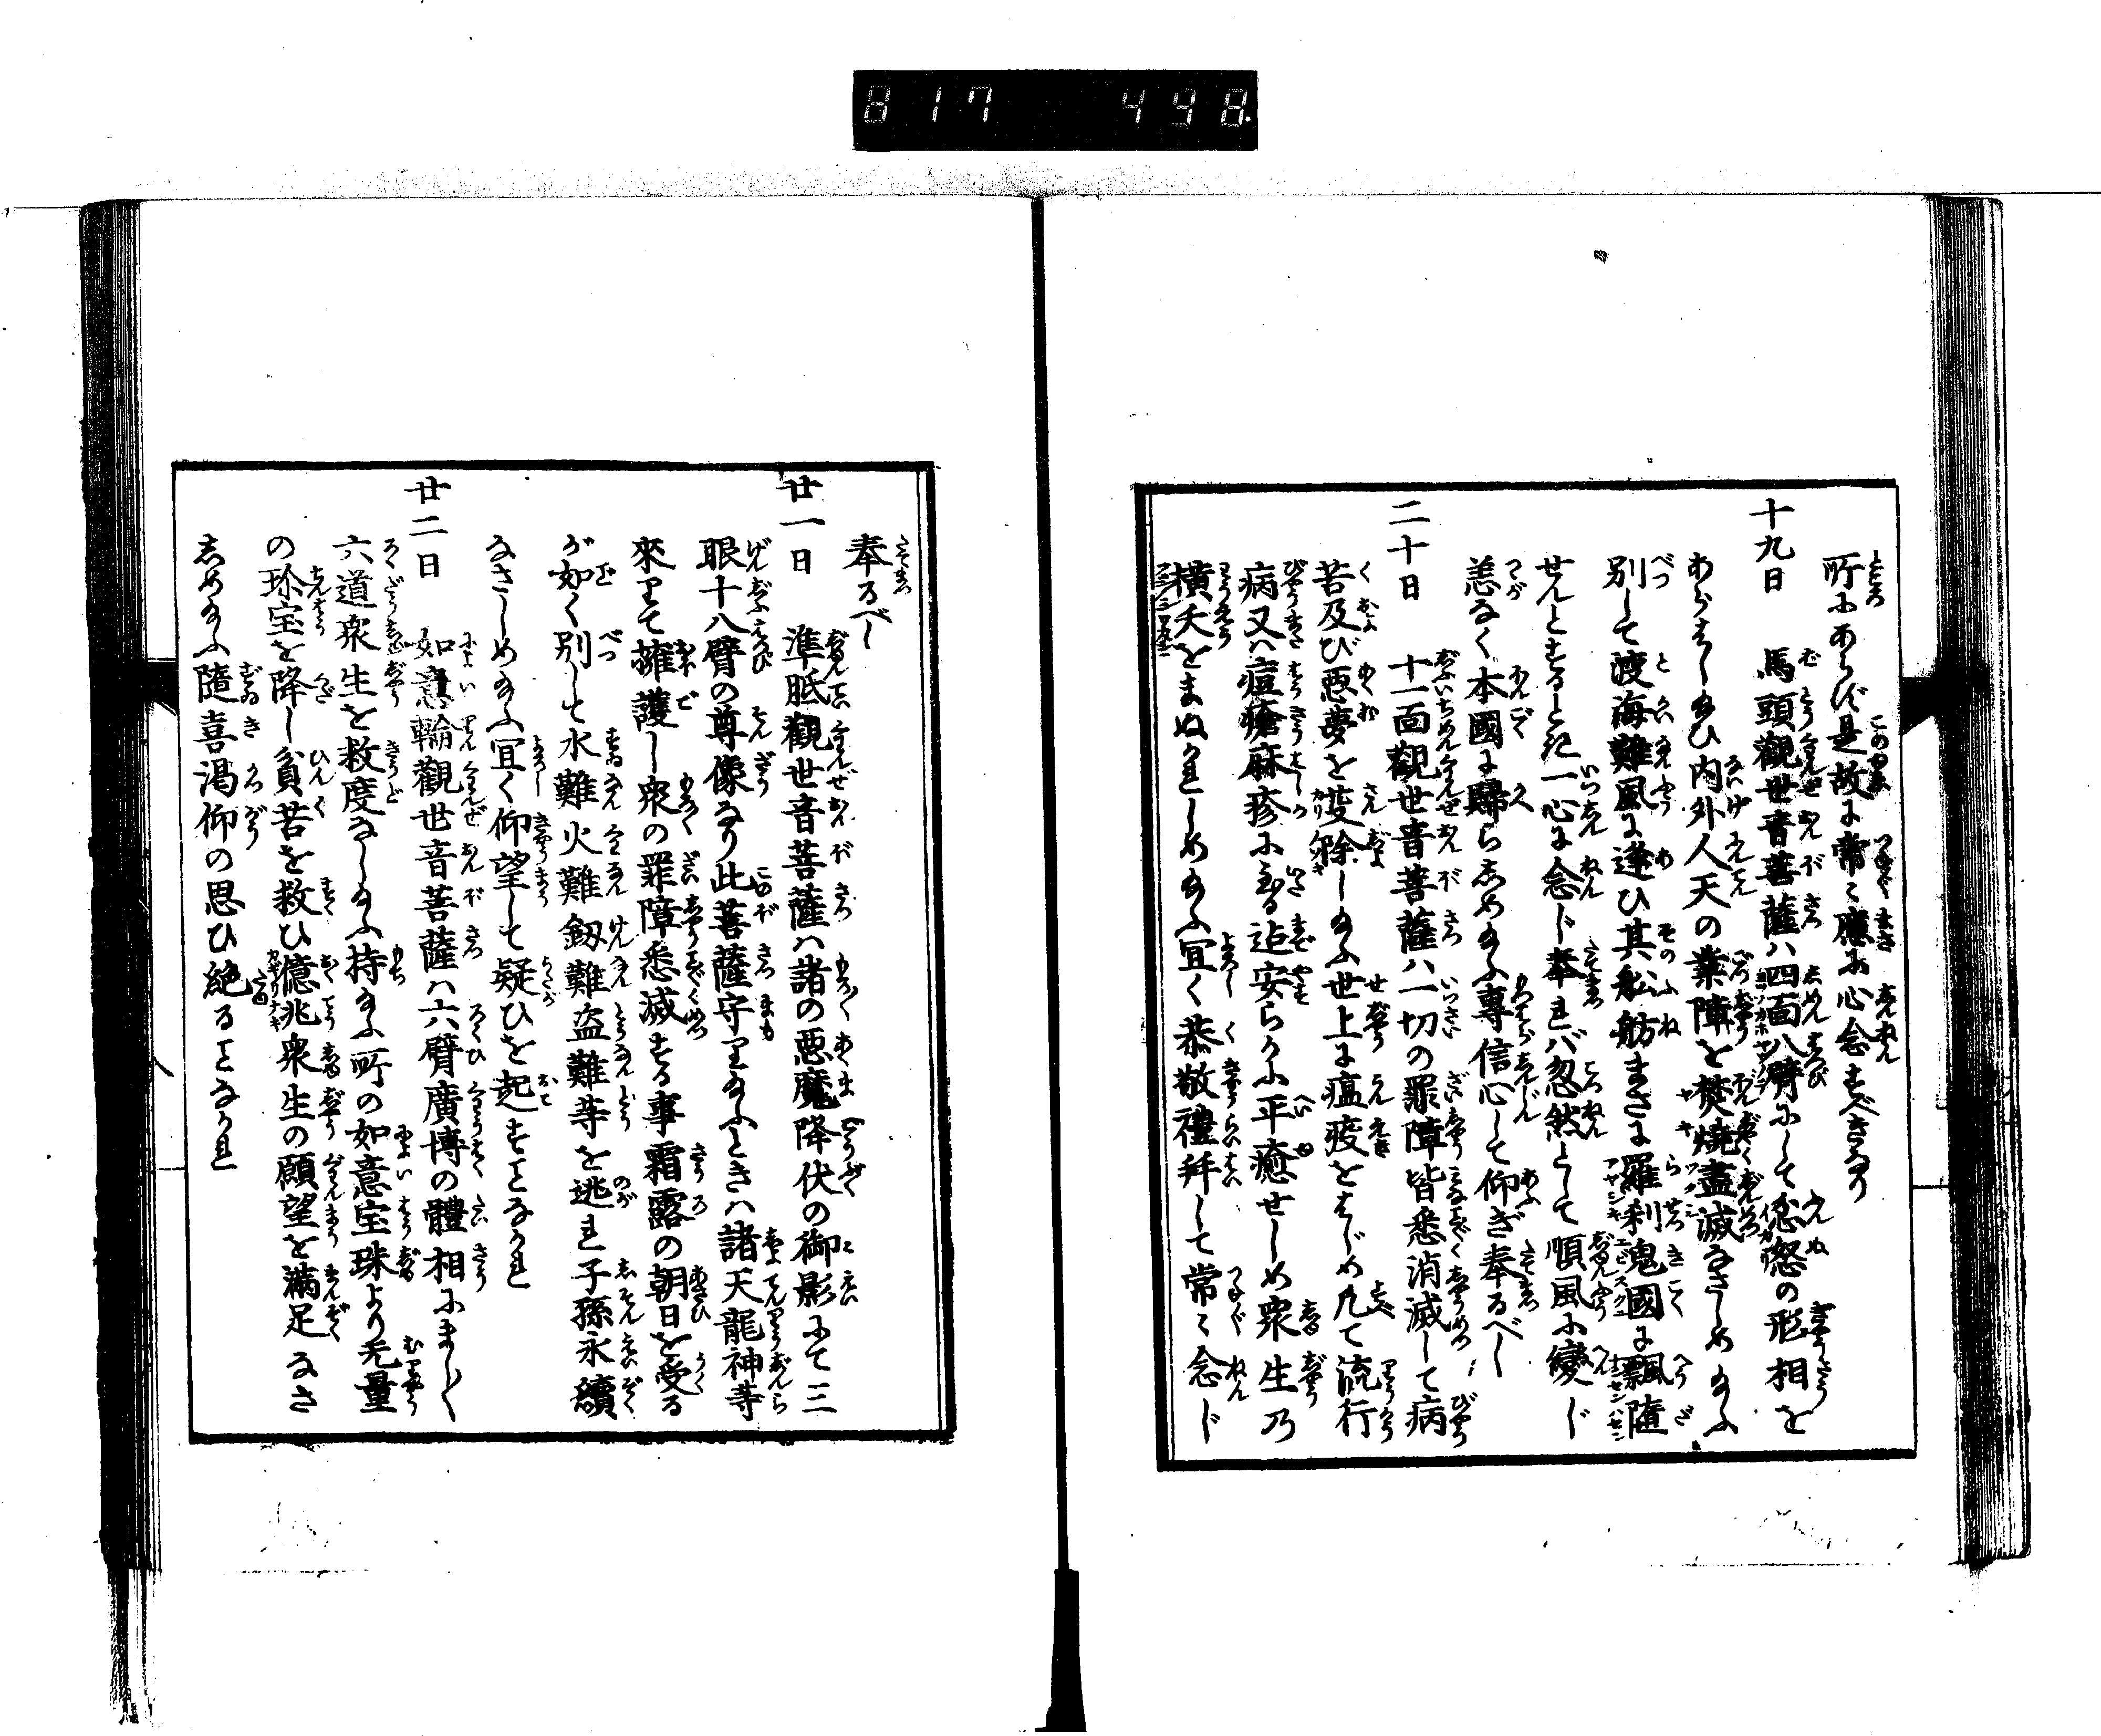 817 498.
所にあらず是故に常に應に心念すべきなり
十九日 馬頭觀世音菩薩ハ四面八臂にして忿怒の形相を
あらをしめひ内外人天の業障を焚燒盡滅なさしめ給ふ
別して渡海難風に逢ひ其舩舫まさに羅刹鬼國に飄墮
せんとするとき一心に念じ奉れバ忽然として順風に變じ
恙なく本國に歸らしめ給ふ専信心して仰ぎ奉るべし
二十日 十一面觀世音菩薩ハ一切の罪障皆悉消滅して病
苦及び悪夢を芟除し給ふ世上に瘟疫をはじめ凡て流行
病又ハ痘瘡麻疹にいたる迠安らかに平癒せしめ衆生乃
横夭をまぬかれしめ給ふ宜く恭敬禮拜して常に念じ
奉るべし
廿一日 準胝觀世音菩薩ハ諸の悪魔降伏の御影にて三
眼十八臂の尊像なり此菩薩守り給ふときハ諸天龍神等
來りて擁護し衆の罪障悉滅する事霜露の朝日を受る
が如く別して水難火難釼難盗難等を逃れ子孫永續
なさしめ給ふ宜く仰望して疑ひを起すことなかれ
廿二日 如意輪觀世音菩薩ハ六臂廣博の體相にまし〱
六道衆生を救度なし給ふ持給ふ所の如意宝珠より无量
の珎宝を降し貧苦を救ひ億兆衆生の願望を滿足なさ
しめ給ふ隨喜渇仰の思ひ絶ることなかれ